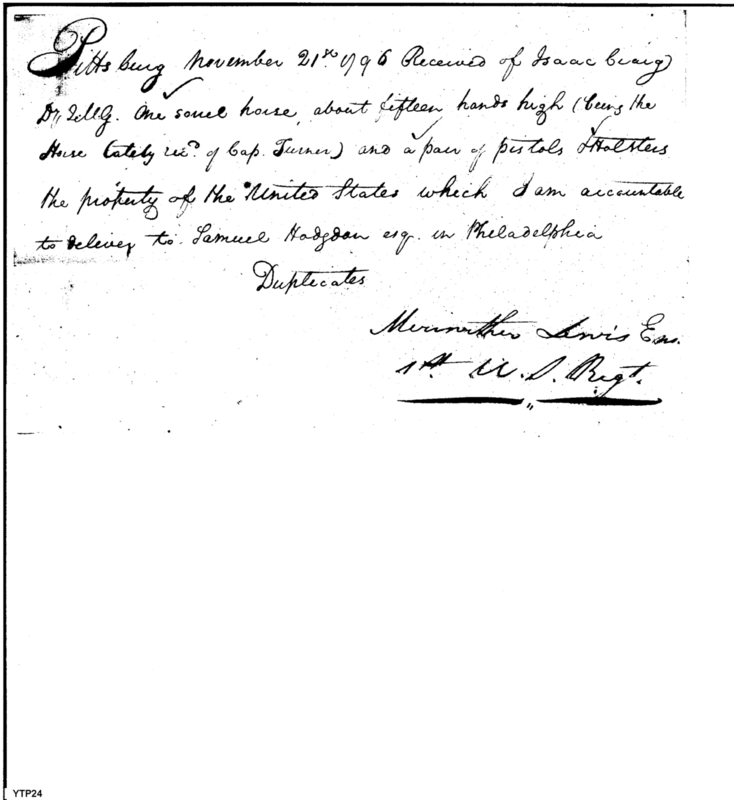 Pittsburg November 21st 1796 Received of Isaac Craig
D. Q M G. One sorrel horse, about fifteen hands high (being the
Horse lately recd. of Cap. Turner) and a pair of pistols & Holsters
the property of the United States which I am accountable
to deliver to Samuel Hodgdon esq. in Philadelphia
Duplicates
Meriwether Lewis Ens.
1st. U. S. Regt.
YTP24